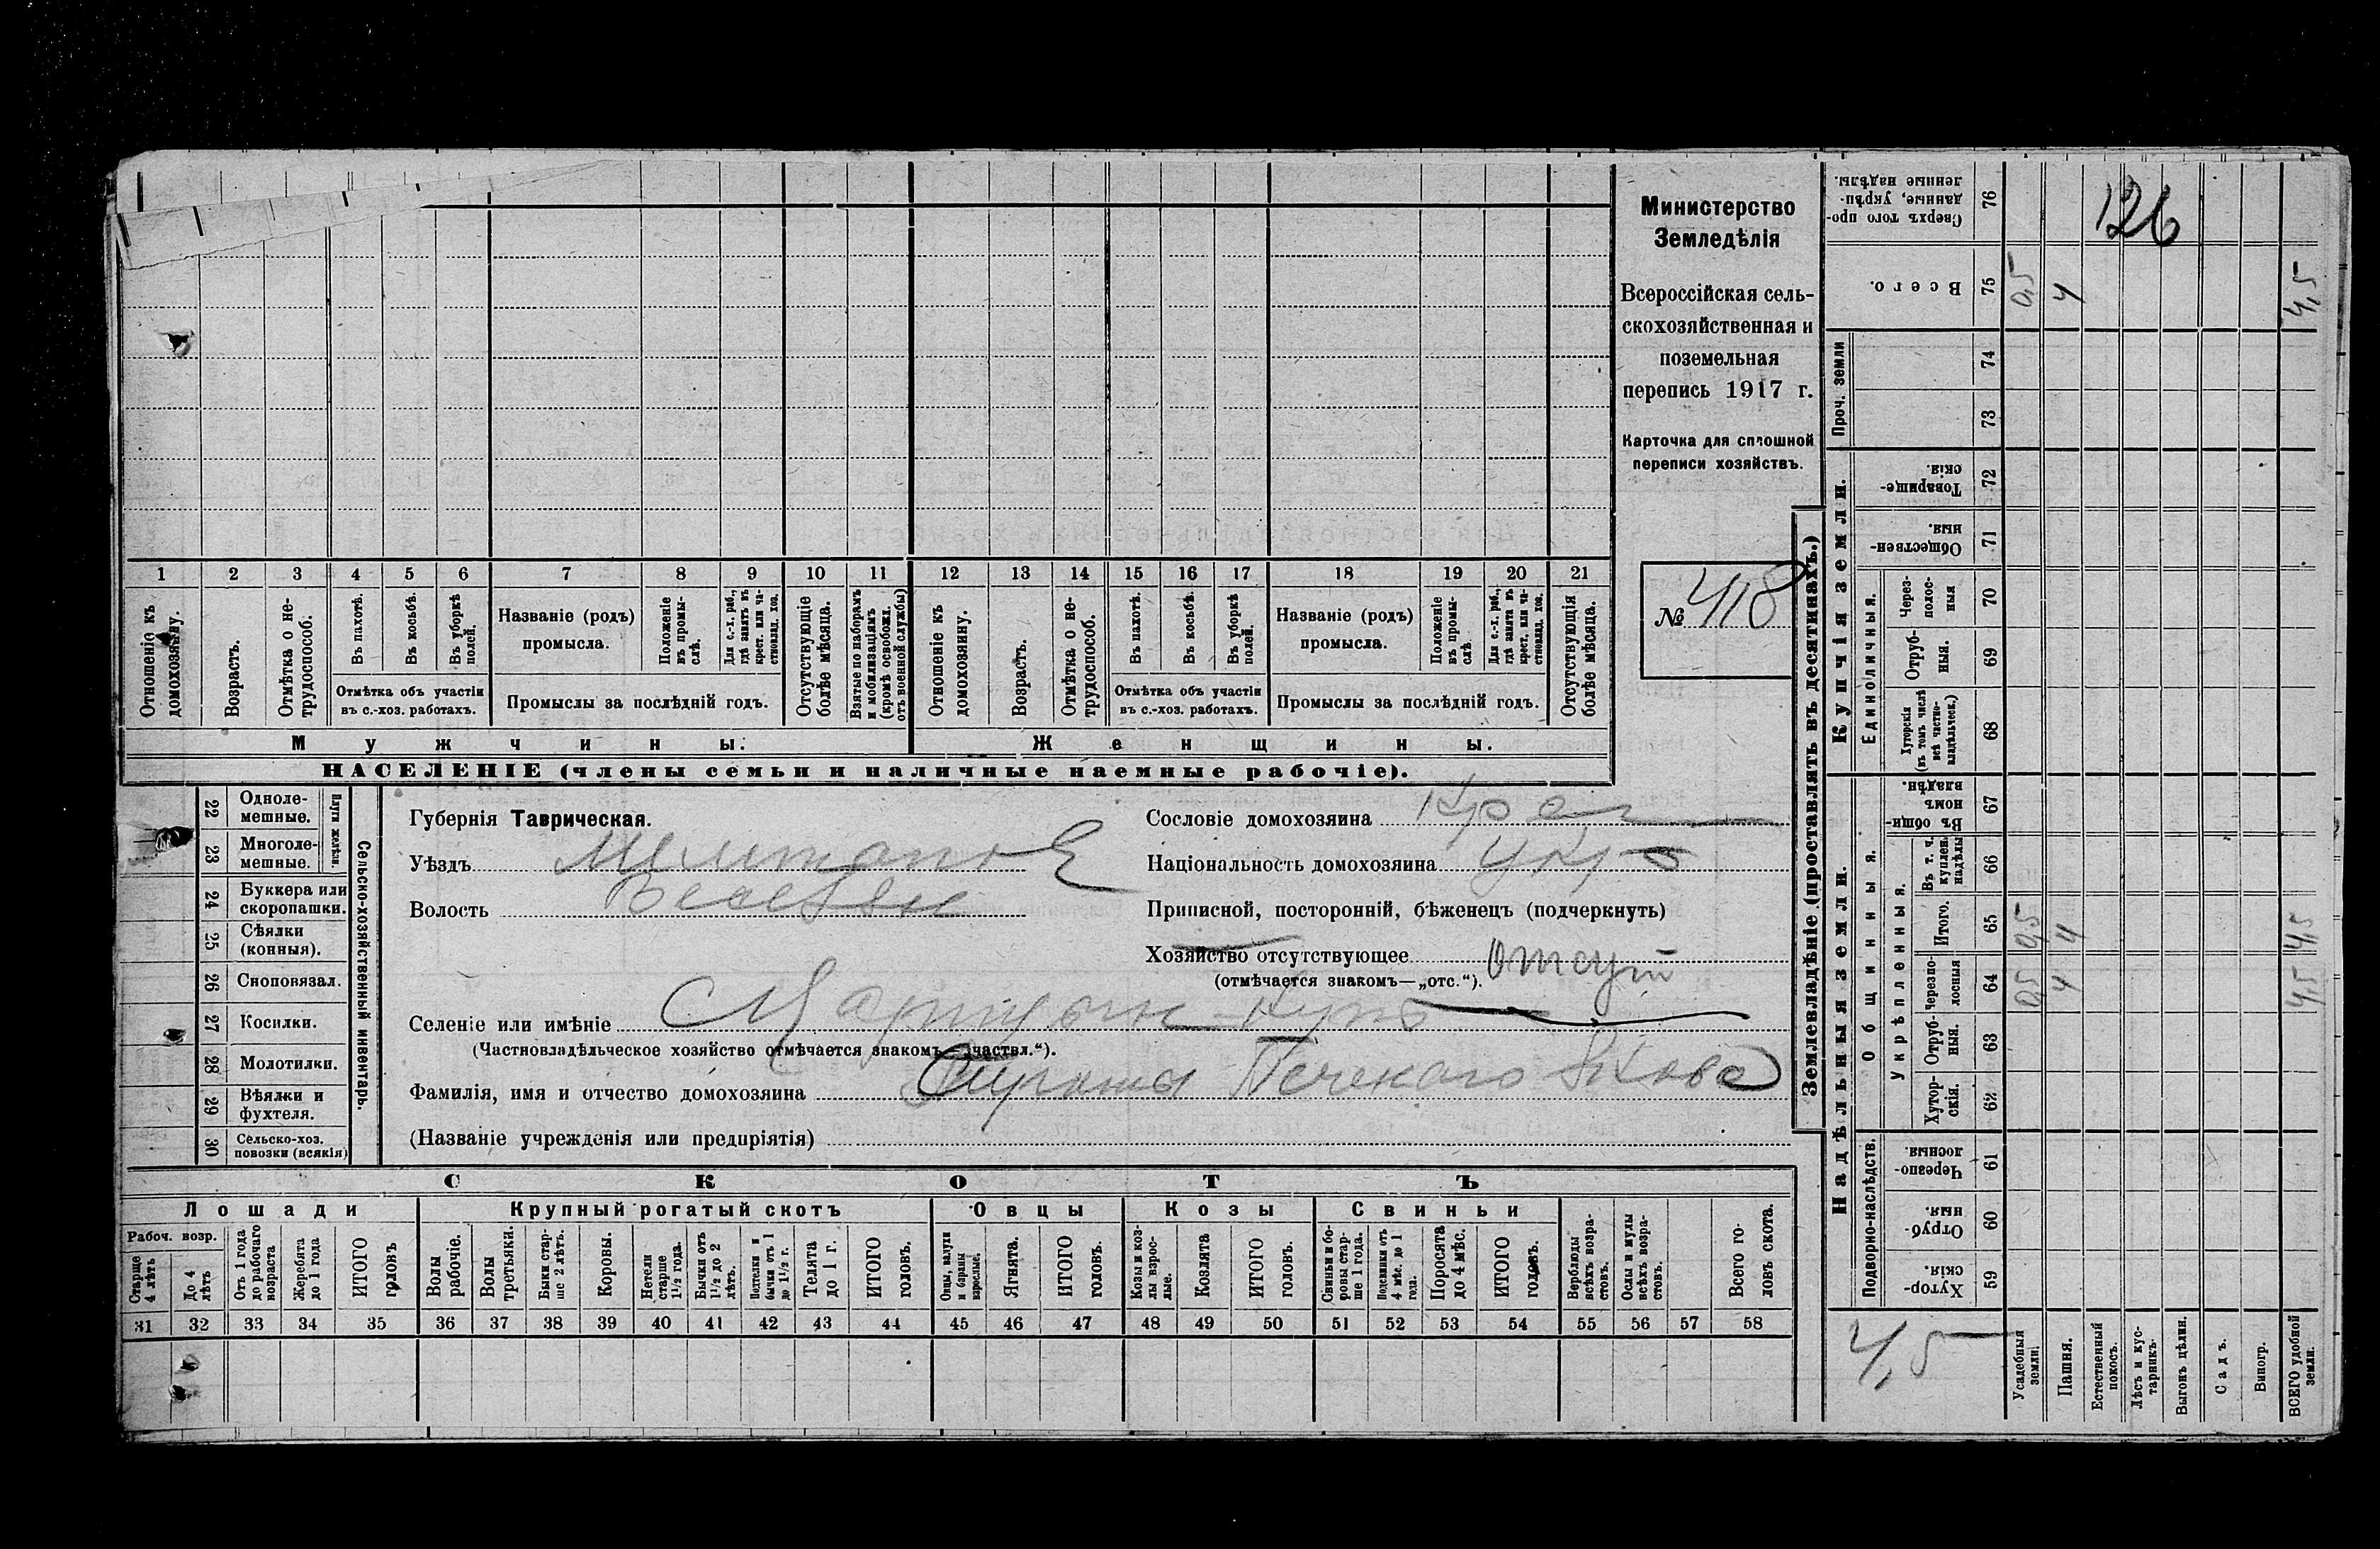 Министерство
Земледѣлія
Всероссійская сель-
скохозяйственная и
поземельная
перепись 1917 г.
Карточка для сплошной
переписи хозяйствъ.
№ 418
126
1 2 3 4 5 6 7 8 9 10 11 12 13 14 15 16 17 18 19 20 21
Отношеніе къ домохозяину.
Возрастъ.
Отмѣтка о не-
трудоспособ.
Въ пахотѣ.
Въ косьбѣ.
Въ уборкѣ
полей.
Отмѣтка объ участіи
въ с.-хоз. работахъ.
Названіе (родъ)
промысла.
Положеніе
въ промы-
слѣ.
Для с.-х. раб.,
гдѣ занятъ въ
крест. или ча-
стновлад. хоз.
Промыслы за послѣдній годъ.
Отсутствующіе
болѣе мѣсяца.
Взятые по наборамъ
и мобилизаціямъ
(кромѣ освобожд.
отъ военной службы)
Отношеніе къ
домохозяину.
Возрастъ.
Отмѣтка о не-
трудоспособ.
Въ пахотѣ.
Въ косьбѣ.
Въ уборкѣ
полей.
Отмѣтка объ участіи
въ с.-хоз. работахъ.
Названіе (родъ)
промысла.
Положеніе
въ промы-
слѣ
Для с.-х. раб.,
гдѣ занята въ
крест. или ча-
стновлад. хоз.
Промыслы за послѣдній годъ.
Отсутствующія
болѣе мѣсяца.
Мужчины.
Женщины.
НАСЕЛЕНІЕ (члены семьи и наличные наемные рабочіе).
22 Одноле-
мешные.
23 Многоле-
мешные.
Плуги желѣзн.
24 Буккера или
скоропашки.
25 Сѣялки
(конныя).
26 Сноповязал.
27 Косилки.
28 Молотилки.
29 Вѣялки и
фухтеля.
30 Сельско-хоз.
повозки (всякія)
Сельско-хозяйственный инвентарь.
Губернія Таврическая.
Уѣздъ
Волость
Селеніе или имѣніе
(Частновладѣльческое хозяйство отмѣчается знакомъ—„частвл.“).
Фамилія, имя и отчество домохозяина
(Названіе учрежденія или предпріятія)
Сословіе домохозяина
Національность домохозяина Укр
Приписной, посторонній, бѣженецъ (подчеркнуть)
Хозяйство отсутствующее Отсут
(отмѣчается знакомъ—„отс.“).
СКОТЪ
Лошади
Крупный рогатый скотъ
Овцы
Козы
Свиньи
Рабоч. возр.
Старше
4 лѣтъ
До 4
лѣтъ
Отъ 1 года
до рабочаго
возраста
Жеребята
до 1 года
ИТОГО
головъ
Волы
рабочіе.
Волы
третьяки.
Быки стар-
ше 2 лѣтъ.
Коровы.
Нетели
старше
1½ года.
Бычки отъ
1½ до 2
лѣтъ.
Нотелки и
бычки отъ 1
до 1½ г.
Телята
до 1 г.
ИТОГО
головъ.
Овцы, валухи
и бараны
взрослые.
Ягнята.
ИТОГО
головъ.
Козы и коз-
лы взрос-
лые.
Козлята
ИТОГО
головъ.
Свиньи и бо-
ровы стар-
ше 1 года.
Подсвинки отъ
4 мѣс. до 1
года.
Поросята
до 4 мѣс.
ИТОГО
головъ.
Верблюды
всѣхъ возра-
стовъ.
Ослы и мулы
всѣхъ возра-
стовъ.
Всего го-
ловъ скота.
31 32 33 34 35 36 37 38 39 40 41 42 43 44 45 46 47 48 49 50 51 52 53 54 55 56 57 58
Землевладѣніе (проставлять въ десятинахъ.)
Купчія земли.
Надѣльныя земли.
Сверхъ того про-
данные, укрѣп-
ленные надѣлы. 76
Всего. 75 0,5 4 4,5
Проч. земли 74
73
Товарище-
скія. 72
Обществен-
ныя. 71
Единоличныя.
Через-
полос-
ныя 70
Отруб-
ныя. 69
Хуторскія
(въ томъ числѣ
всѣ частно-
владѣльческ.) 68
Общинныя.
Въ общин-
номъ
владѣн. 67
Укрѣпленныя.
Въ т. ч.
куплен.
надѣлы 66
Итого. 65 0,5 4 4,5
Черезпо-
лосныя 64 0,5 4 4,5
Отруб-
ныя. 63
Хутор-
скія. 62
Подворно-наслѣдств.
Черезпо-
лосныя. 61
Отруб-
ныя. 60
Хутор-
скія. 59
4,5
Усадебныя
земли.
Пашня.
Естественный
покосъ.
Лѣсъ и кус-
тарникъ
Выгонъ цѣлин.
Садъ.
Виногр.
ВСЕГО удобной
земли.